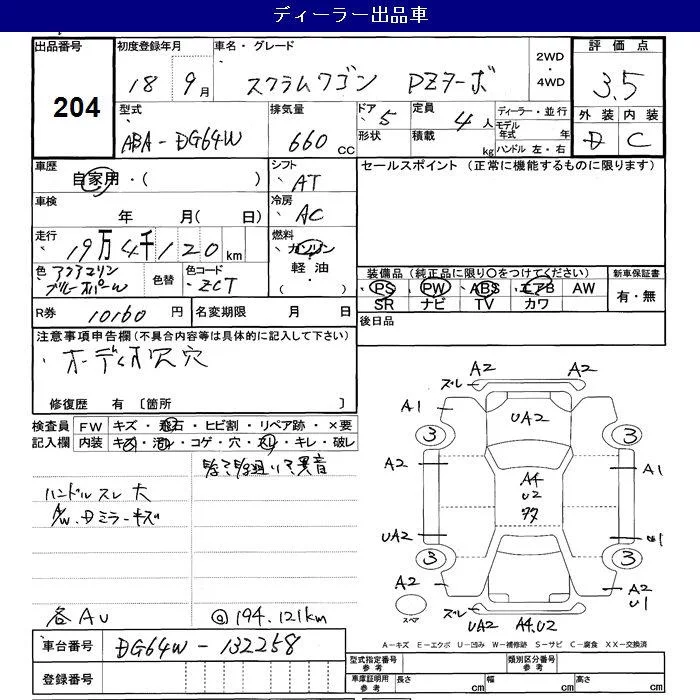 ディーラー出品車
出品番号 初度登録年月 車名・グレード 2WD・4WD 評価点
204 18 9月 スクラムワゴン PZターボ 3.5
型式 排気量 ドア 5 定員 4人 ディーラー・並行 外装 内装
ABA-DG64W 660cc 形状 積載 kg モデル年式 年 D C
ハンドル 左・右
車歴 自家用・( ) シフト AT セールスポイント (正常に機能するものに限ります)
車検 年 月( 日) 冷房 AC
走行 19万4千120km 燃料 ガソリン
軽油
・( )
色 アクアマリンブルーオパール 色替 色コード ZCT
装備品(純正品に限り○をつけてください) 新車保証書
PS PW ABS エアB AW 有・無
SR ナビ TV カワ
R券 10160円 名変期限 月 日 後日品
注意事項申告欄(不具合内容等は具体的に記入して下さい)
修復歴 有 〔箇所 〕
検査員記入欄 FW キズ・飛石・ヒビ割・リペア跡・×要
内装 キズ・汚れ・コゲ・穴・スレ・キレ・破レ
ハンドルスレ大
A/W、Dミラーキズ
各AU @194.121km
車台番号 DG64W-132258
登録番号
ズレ A2 A2
A1 UA2
3 3
A2 A4 A1
U2
UA2 U1
3 3
A2 A2
U1
スペア ズレ UA2 A4,U2
A-キズ E-エクボ U-凹み W-補修跡 S-サビ C-腐食 XX-交換済
型式指定番号 参考 類別区分番号 参考
車庫証明用 参考 長さ cm 幅 cm 高さ cm